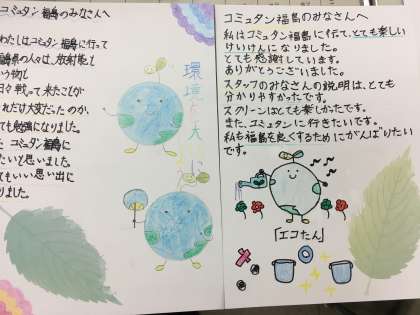 コミュタン福島のみなさんへ
わたしはコミュタン福島に行って
福島県の人々は、放射能と
いう物と
日々戦って来たことが
どれだけ大変だったのか、
ても勉強になりました。
た コミュタン福島に
たいと思いました。
てもいい思い出に
りました。
環境を大
に
コミュタン福島のみなさんへ
私はコミュタン福島に行て、とても楽しい
けいけんになりました。
とても感謝しています。
ありがとうございました。
スタッフのみなさんの説明は、とても
分かりやすかったです。
スクリーンはとても楽しかったです。
また、コミュタンに行きたいです。
私も福島を良くするためにがんばりたい
です。
「エコたん」